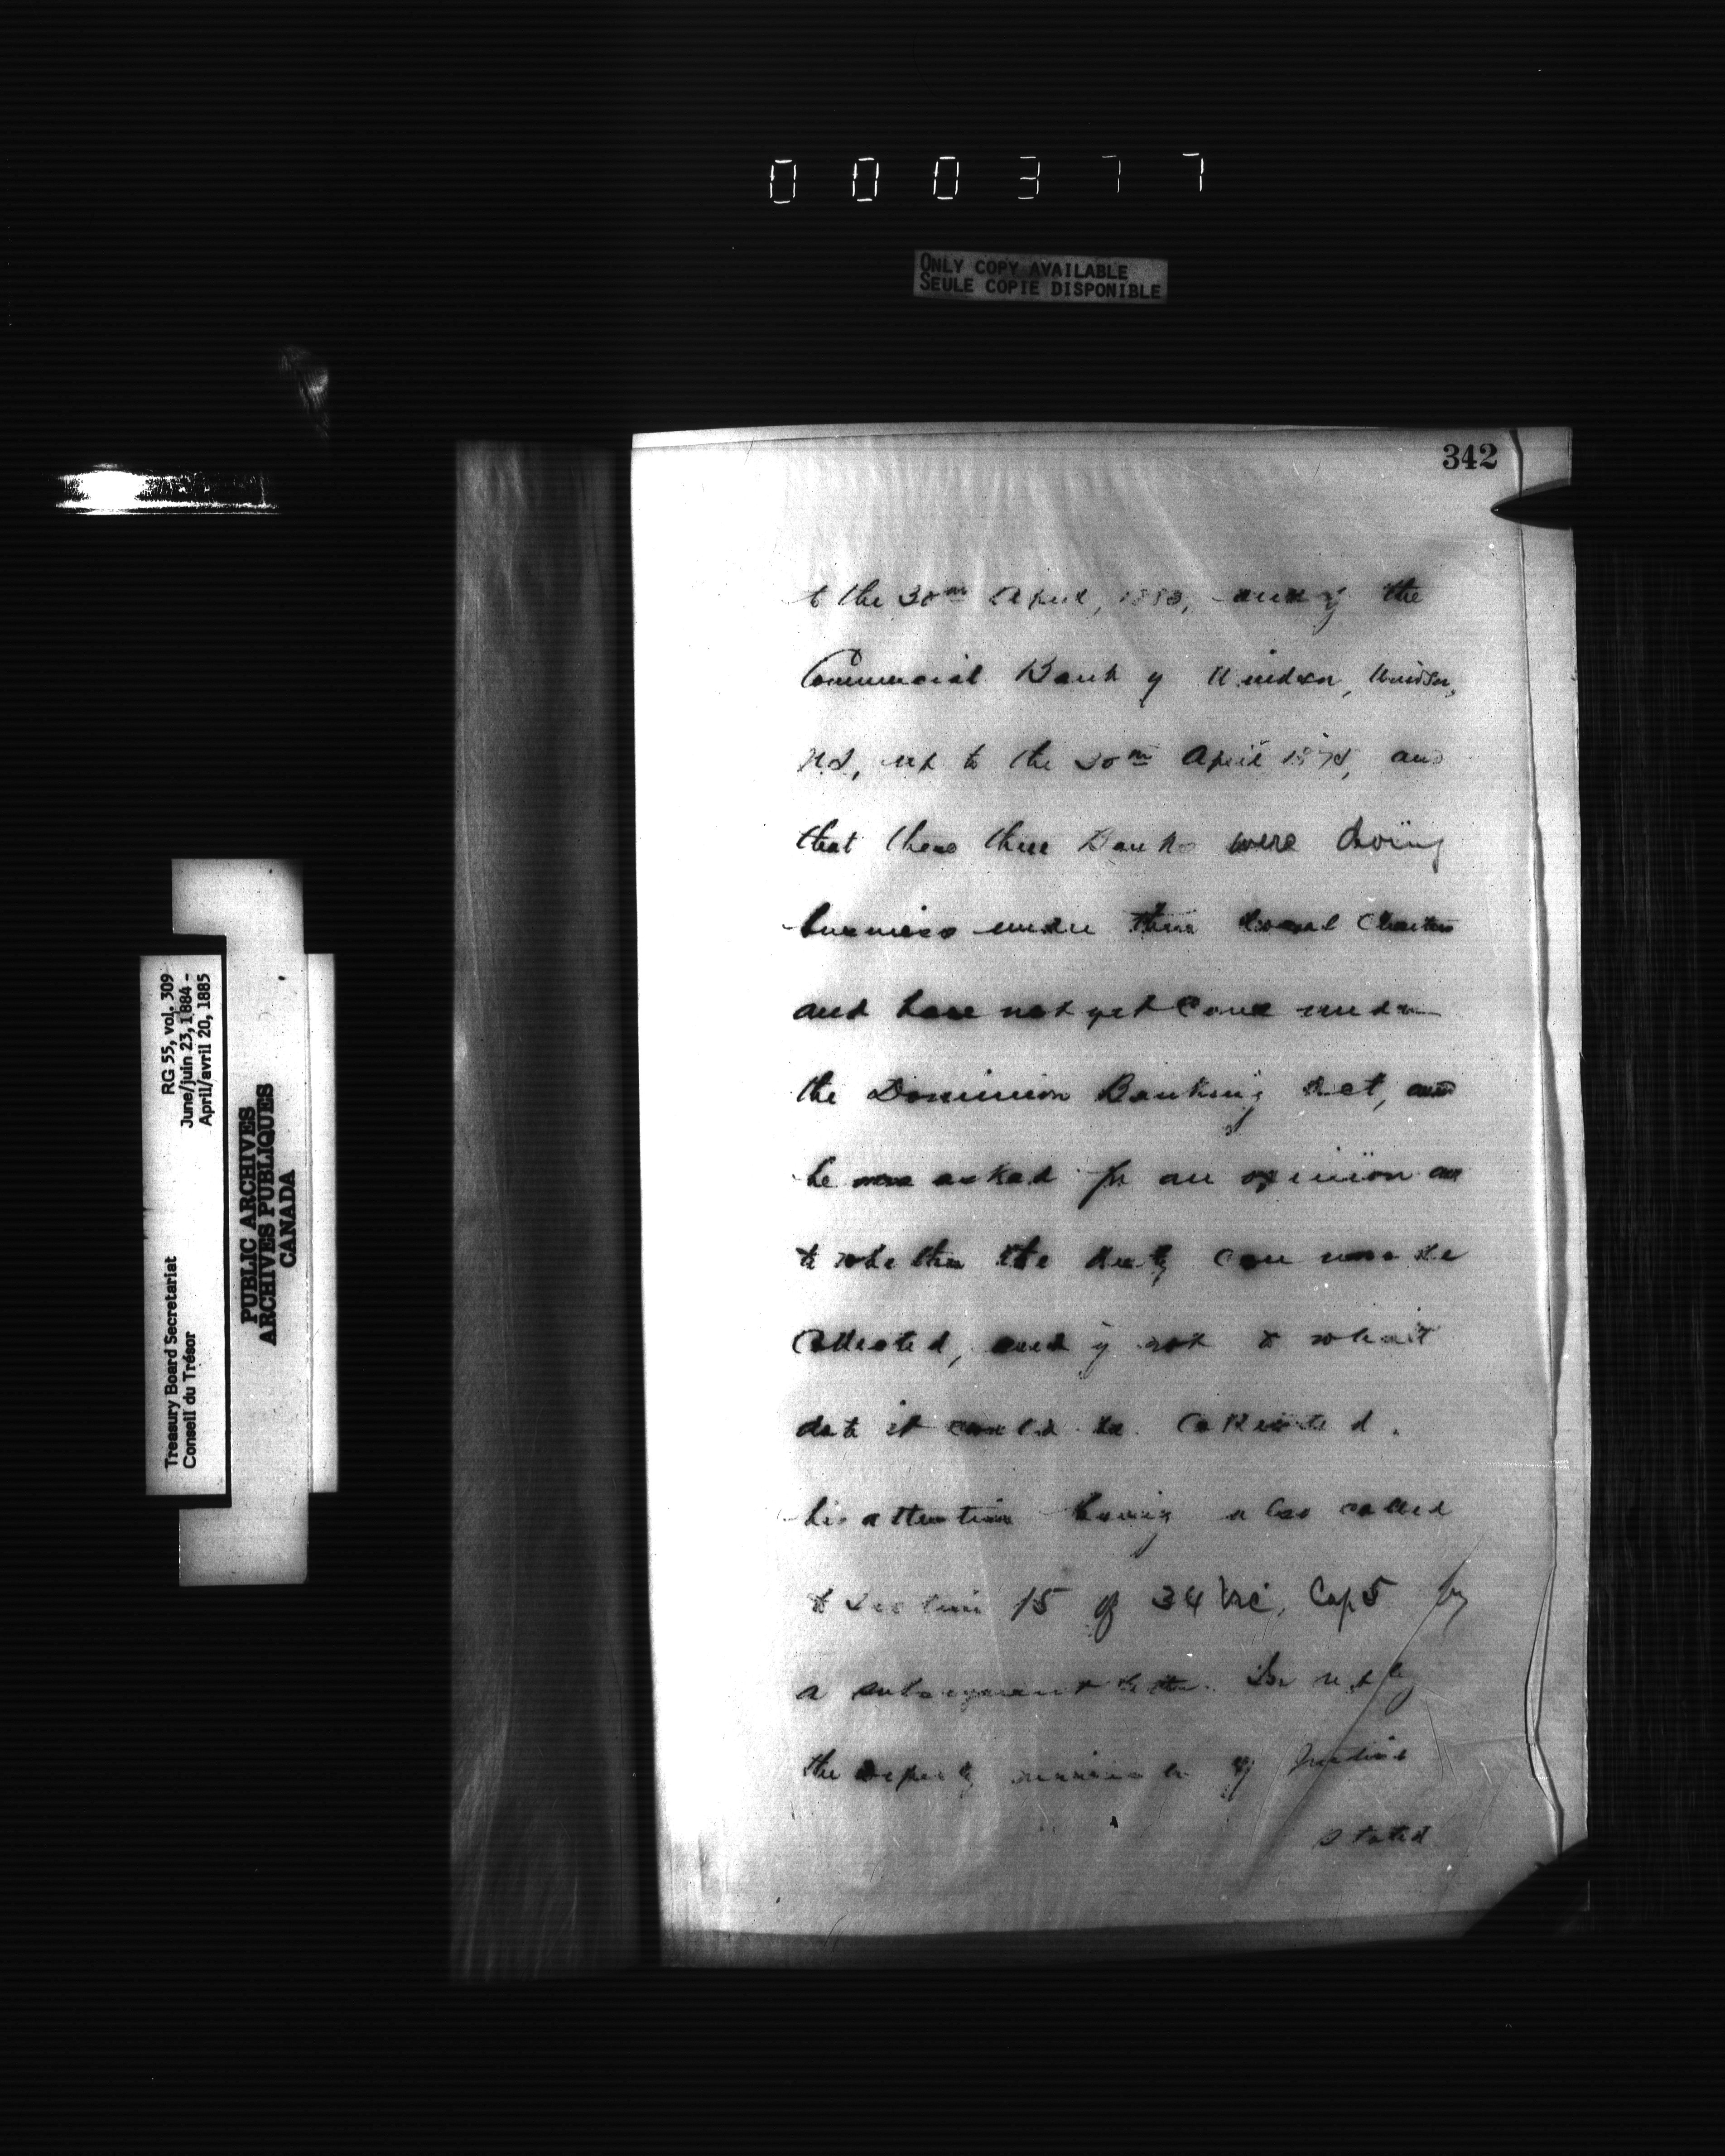 000377
ONLY COPY AVAILABLE
SEULE COPIE DISPONIBLE
342
to the 30th April, 1883, and of the
Commercial Bank of Windsor, Windsor,
N.S, up to the 30th April 1878, and
that these three Banks were doing
business under their Local Charters
and have not yet come under
the Dominion Banking Act, and
he was asked for an opinion as
to whether the duty can now be
collected, and if not to what
date it could be collected.
his attention having also called
to Section 15 of 34 Vic, Cap 5 by
a subsequent letter. In reply
the Deputy minister of Justice
stated
RG 55, vol. 309
June/juin 23, 1884 -
April/avril 20, 1885
Treasury Board Secretariat
Conseil du Trésor
PUBLIC ARCHIVES
ARCHIVES PUBLIQUES
CANADA